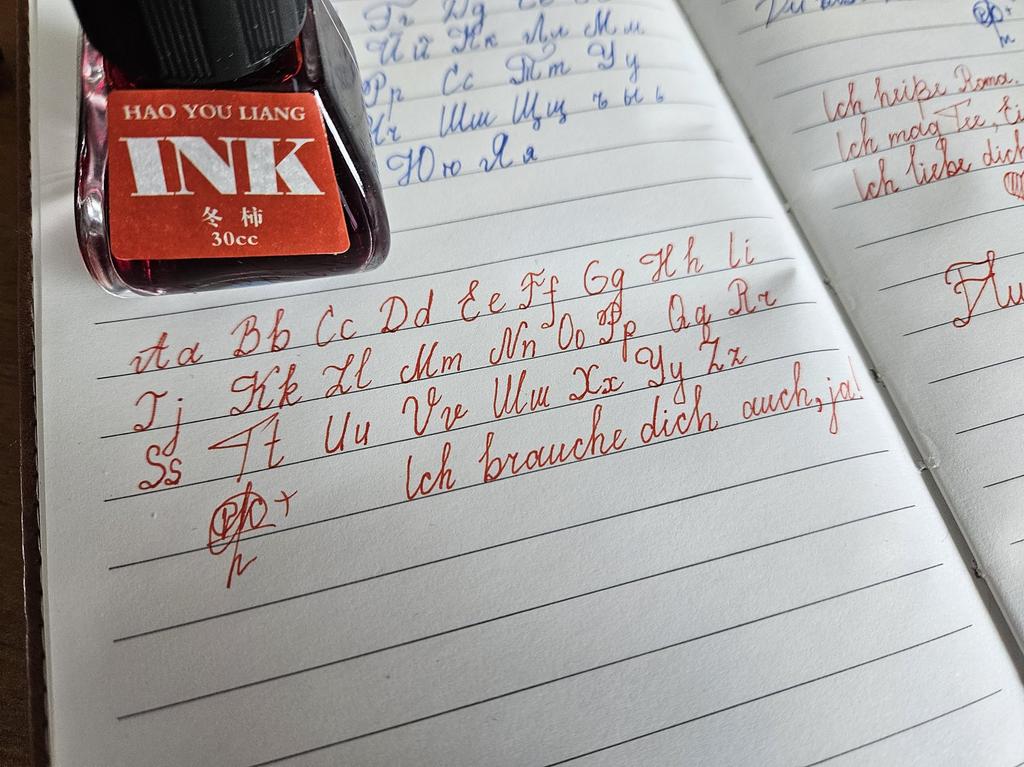 HAO YOU LIANG
INK
冬柿
30cc
Йй Кк Лл Мм
Рр Сс Тт Уу
Шш Щщ ъ ы ь
Юю Яя
Aa Bb Cc Dd Ee Ff Gg Hh Ii
Jj Kk Ll Mm Nn Oo Pp Qq Rr
Ss Tt Uu Vv Ww Xx Yy Zz
Ich brauche dich auch, ja!
Ich heiße Roma.
Ich mag Tee,
Ich liebe dich